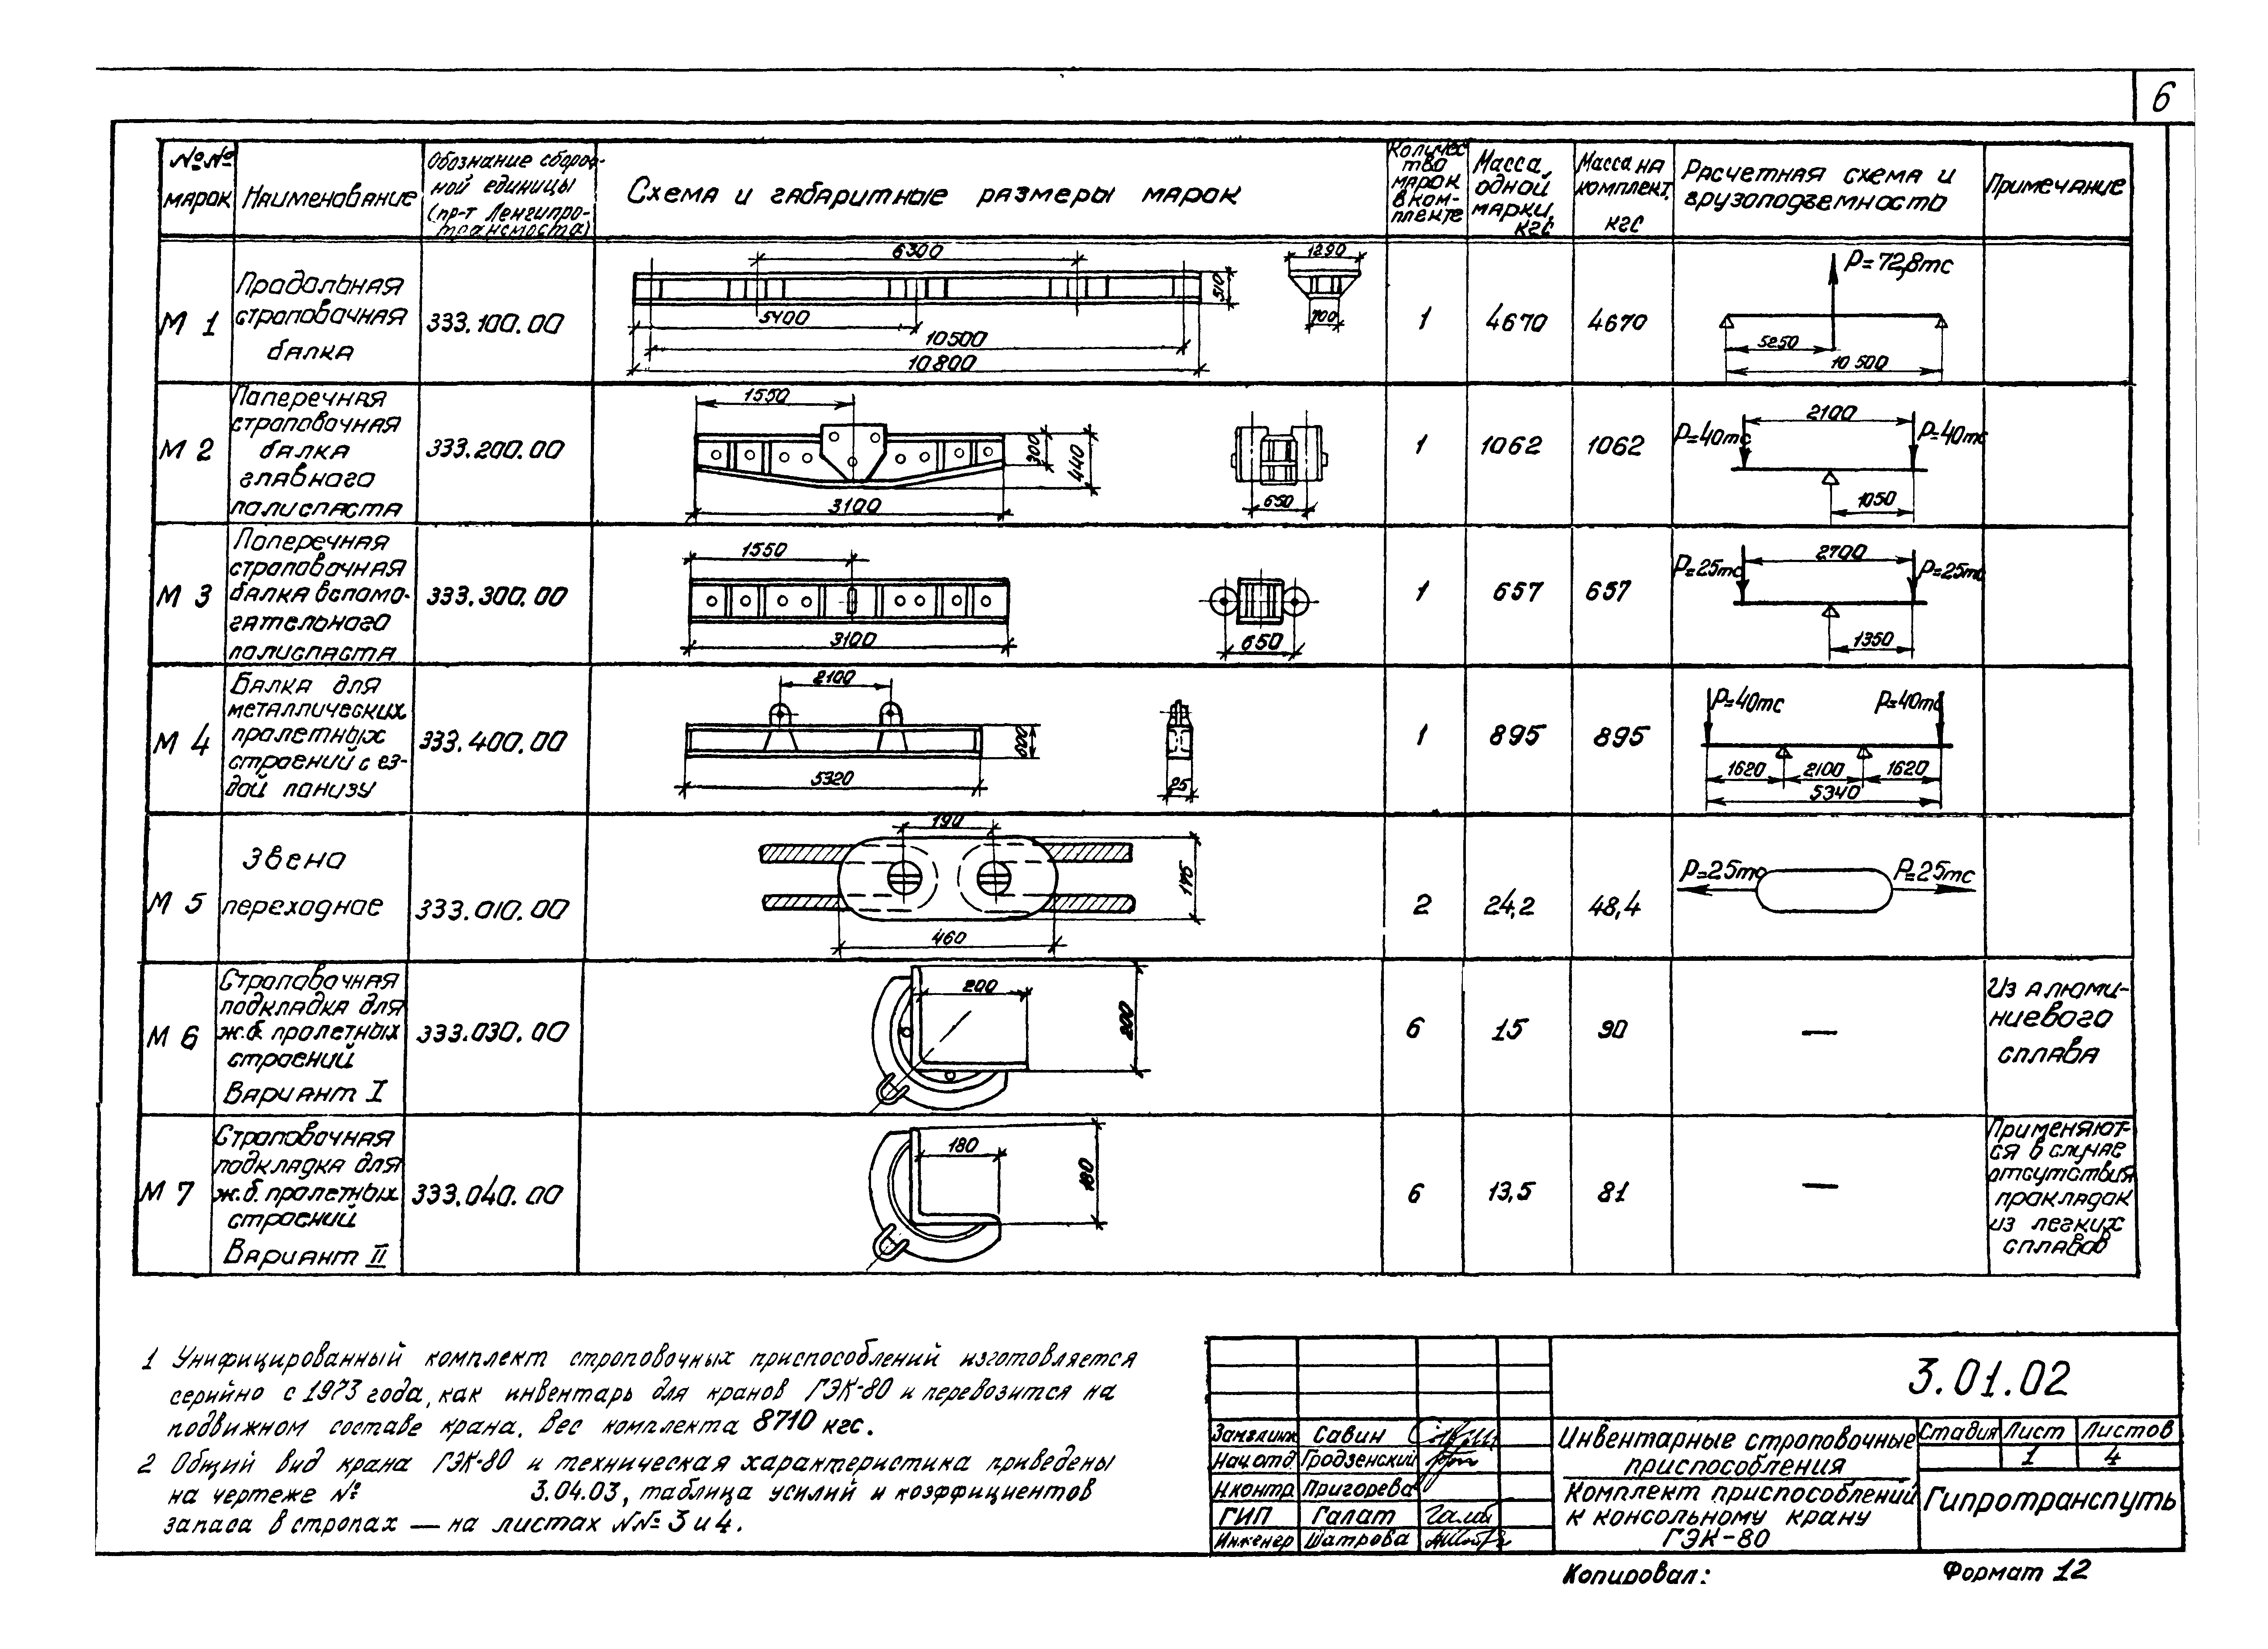 6
№№
марок
Наименование
Обознание сбороч-
ной единицы
(пр-т Ленгипро-
трансмоста)
Схема и габаритные размеры марок
Количес
тво
марок
в ком-
плекте
Масса
одной
марки,
кгс
Масса на
комплект,
кгс
Расчетная схема и
грузоподъемность
Примечание
М 1
Продольная
строповочная
балка
333.100.00
6300
510
5400
10500
10800
1290
700
1
4670
4670
Р=72,8тс
5250
10 500
М 2
Поперечная
строповочная
балка
главного
полиспаста
333.200.00
1550
300
440
3100
650
1
1062
1062
2100
Р=40тс
Р=40тс
1050
М 3
Поперечная
строповочная
балка вспомо-
гательного
полиспаста
333.300.00
1550
3100
650
1
657
657
2700
Р=25тс
Р=25тс
1350
М 4
Балка для
металлических
пролетных
строений с ез-
дой понизу
333.400.00
2100
600
5320
25
1
895
895
Р=40тс
Р=40тс
1620
2100
1620
5340
М 5
Звено
переходное
333.010.00
190
175
460
2
24,2
48,4
Р=25тс
Р=25тс
М 6
Строповочная
подкладка для
ж.б. пролетных
строений
Вариант I
333.030.00
200
200
6
15
90
—
Из алюми-
ниевого
сплава
М 7
Строповочная
подкладка для
ж.б. пролетных
строений
Вариант II
333.040.00
180
180
6
13,5
81
—
Применяют-
ся в случае
отсутствия
прокладок
из легких
сплавов
1 Унифицированный комплект строповочных приспособлений изготовляется
серийно с 1973 года, как инвентарь для кранов ГЭК-80 и перевозится на
подвижном составе крана. Вес комплекта 8710 кгс.
2 Общий вид крана ГЭК-80 и техническая характеристика приведены
на чертеже № 3.04.03, таблица усилий и коэффициентов
запаса в стропах — на листах №№ 3 и 4.
3.01.02
Зам.гл.инж. Савин
Нач.отд Гродзенский
Н.контр Пригорева
ГИП Галат
Инженер Шатрова
Инвентарные строповочные
приспособления
Комплект приспособлений
к консольному крану
ГЭК-80
Стадия Лист Листов
1 4
Гипротранспуть
Копировал:
Формат 12